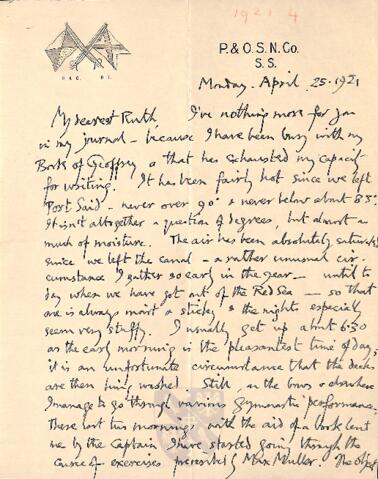 1921 4
P. & O. S. N. Co.
S. S.
Monday. April 25. 1921
My dearest Ruth, I've nothing more for you
in my journal – because I have been busy with my
Book of Geoffrey & that has exhausted my capacity
for writing. It has been fairly hot since we left
Port Said – never over 90° & never below about 85°.
It isn't altogether a question of degrees, but almost as
much of moisture. The air has been absolutely saturated
since we left the canal – a rather unusual cir-
cumstance I gather so early in the year – until to
day when we have got out of the Red Sea – so that
one is always moist & sticky & the nights especially
seem very stuffy. I usually get up about 6.30
as the early morning is the pleasantest time of day;
it is an unfortunate circumstance that the decks
are then being washed. Still, in the bows & elsewhere
I manage to go through various gymnastic performances.
These last two mornings with the aid of a book lent
me by the Captain I have started going through the
course of exercises prescribed by Max Muller. The object